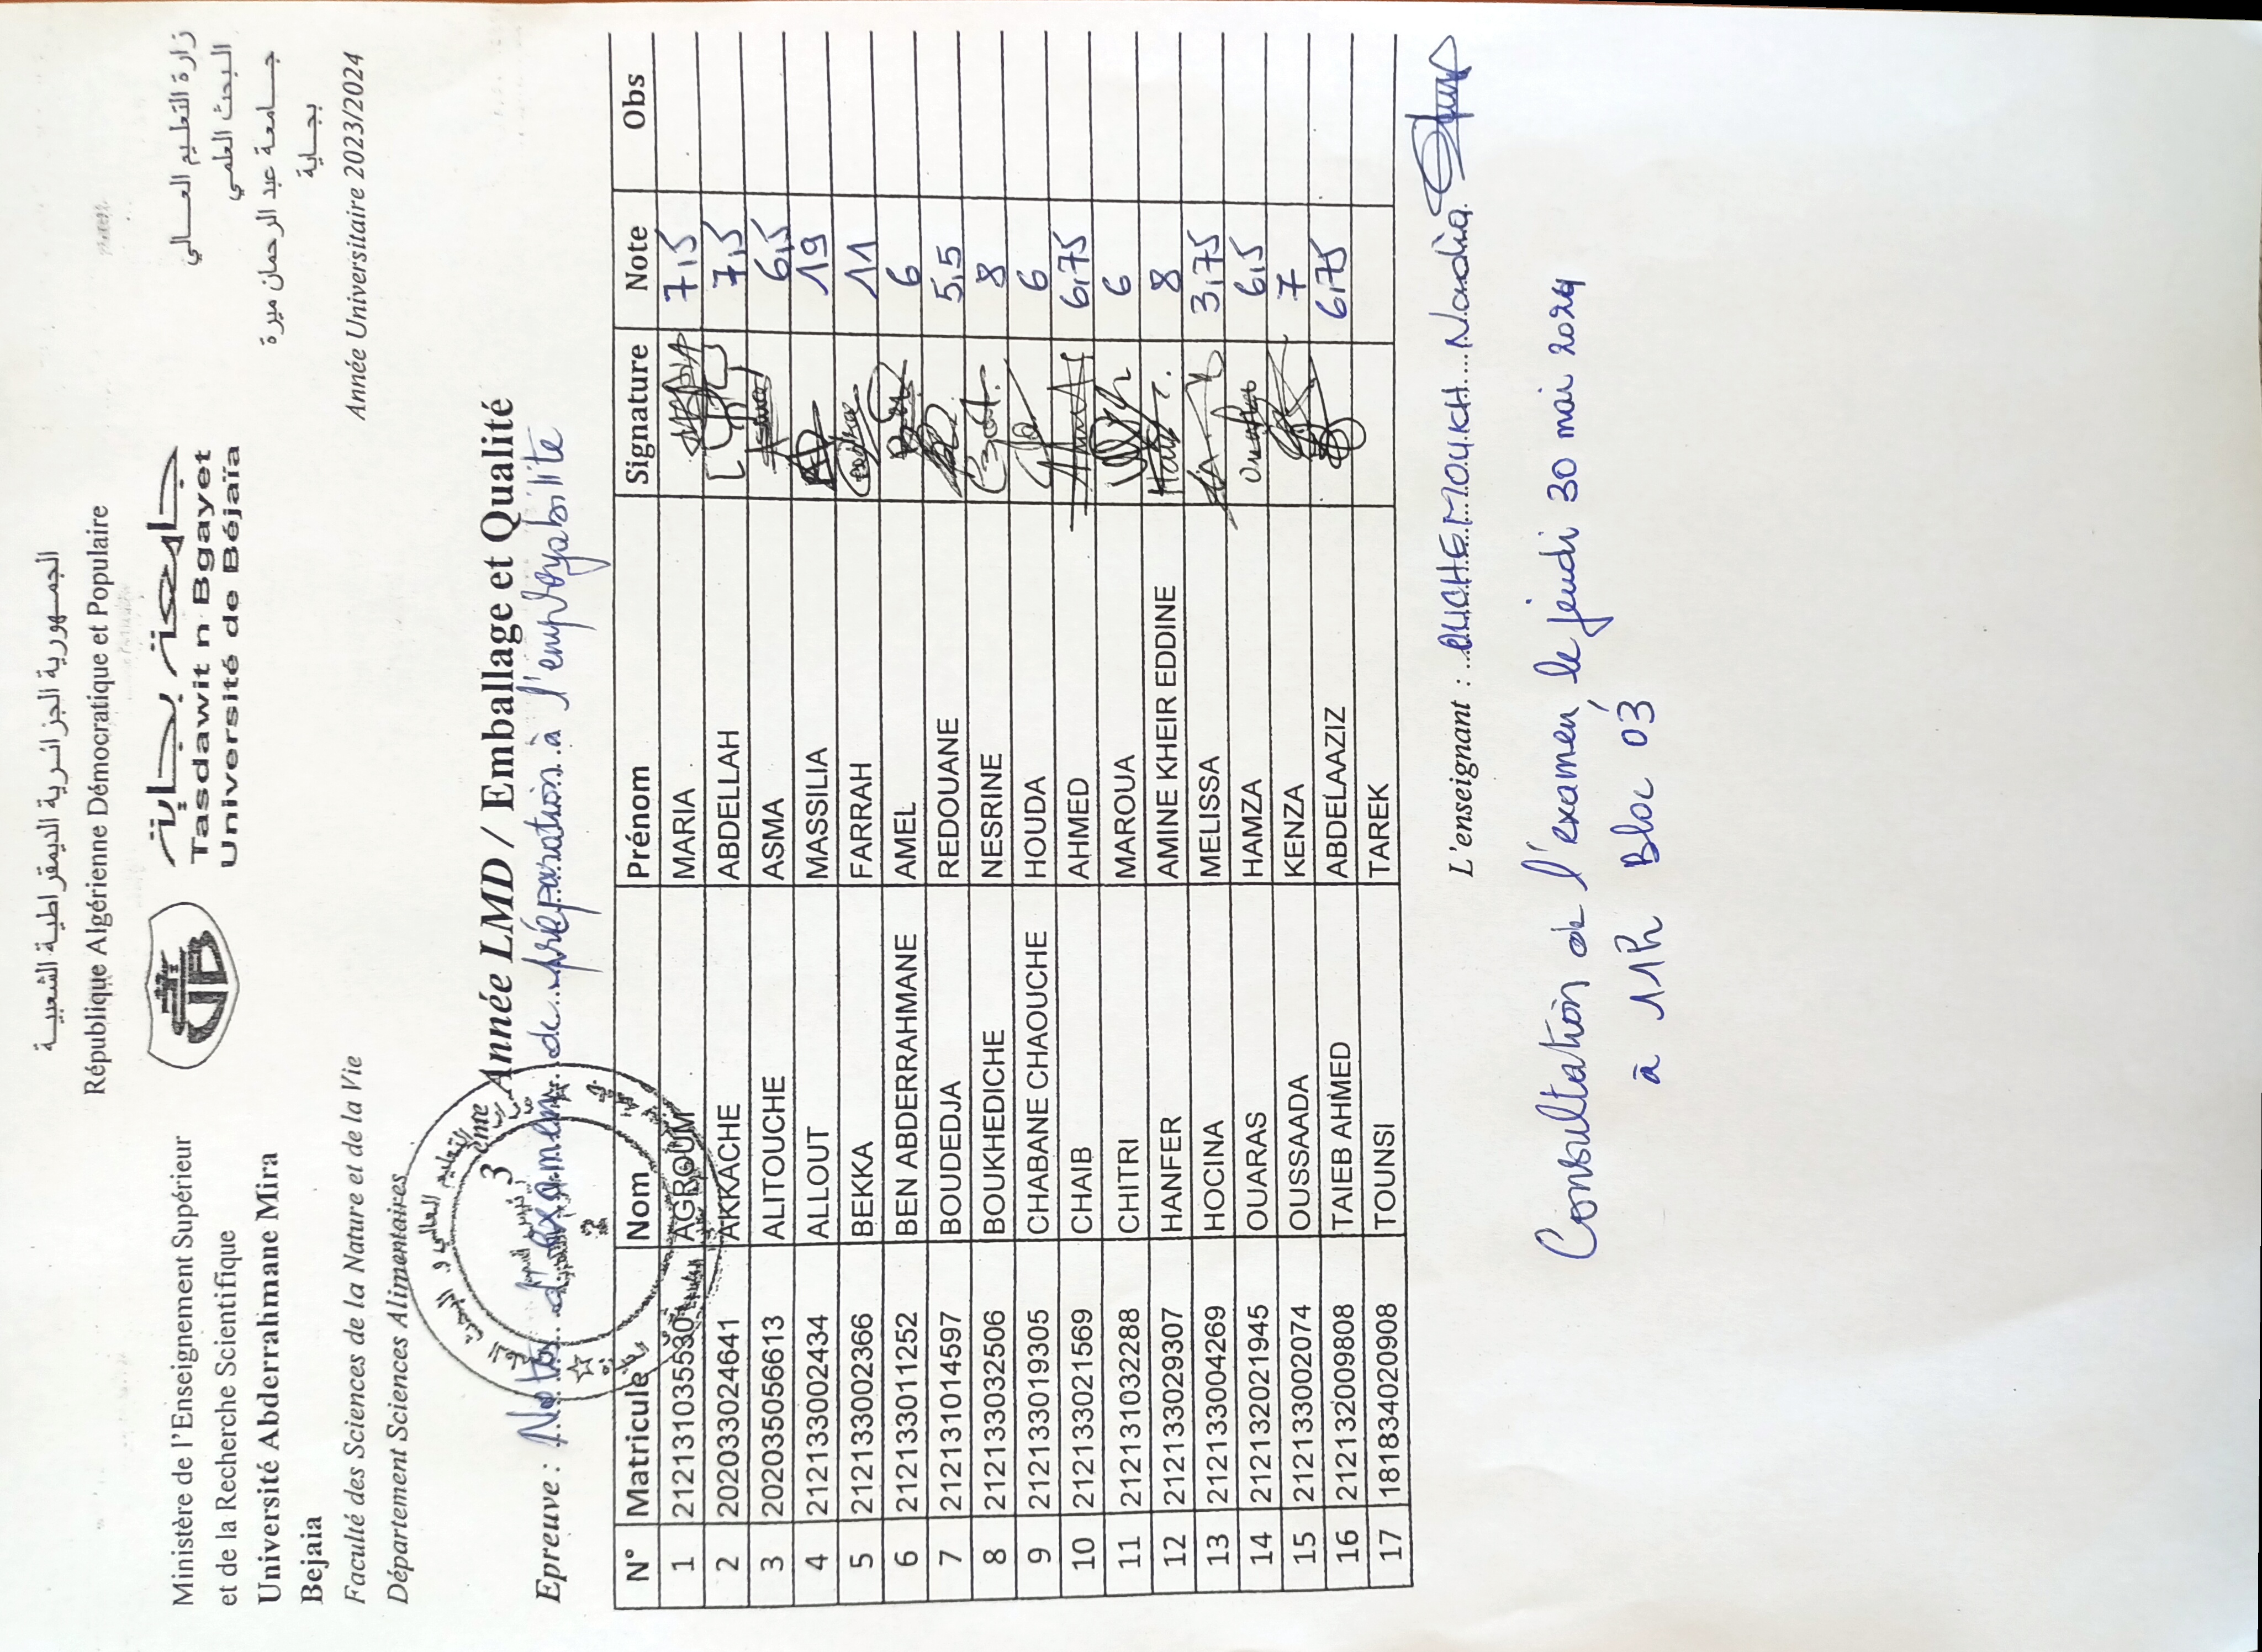 الجمهورية الجزائرية الديمقراطية الشعبية
République Algérienne Démocratique et Populaire
Ministère de l'Enseignement Supérieur
et de la Recherche Scientifique
Université Abderrahmane Mira
Bejaia
جامعة بجاية
Tasdawit n Bgayet
Université de Béjaïa
زارة التعليم العالي
البحث العلمي
جامعة عبد الرحمان ميرة
بجاية
Faculté des Sciences de la Nature et de la Vie
Année Universitaire 2023/2024
Département Sciences Alimentaires
3ème Année LMD / Emballage et Qualité
Epreuve : Notes d'examen de préparation à l'employabilité
N° Matricule Nom Prénom Signature Note Obs
1 212131035530 AGROUM MARIA 7,5
2 202033024641 AKKACHE ABDELLAH 7,5
3 202035056613 ALITOUCHE ASMA 6,5
4 212133002434 ALLOUT MASSILIA 19
5 212133002366 BEKKA FARRAH 11
6 212133011252 BEN ABDERRAHMANE AMEL 6
7 212131014597 BOUDEDJA REDOUANE 5,5
8 212133032506 BOUKHEDICHE NESRINE 8
9 212133019305 CHABANE CHAOUCHE HOUDA 6
10 212133021569 CHAIB AHMED 6,75
11 212131032288 CHITRI MAROUA 6
12 212133029307 HANFER AMINE KHEIR EDDINE 8
13 212133004269 HOCINA MELISSA 3,75
14 212132021945 OUARAS HAMZA 6,5
15 212133002074 OUSSAADA KENZA 7
16 212132009808 TAIEB AHMED ABDELAAZIZ 6,75
17 181834020908 TOUNSI TAREK
L'enseignant : OUCHEMOUKH Nadia
Consultation de l'examen, le jeudi 30 mai 2024
à 11h Bloc 03